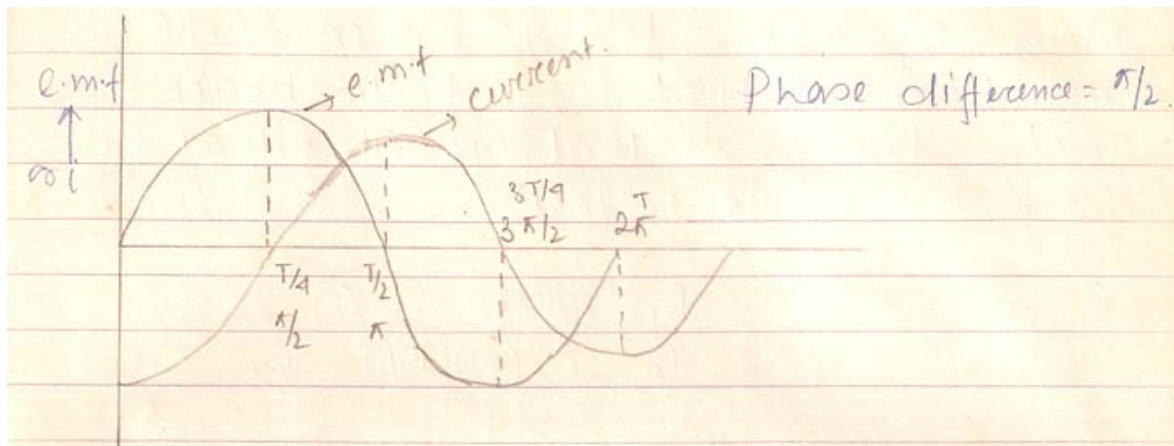 e.m.f
or i
→ e.m.f
current.
Phase difference = π/2.
3T/4
3π/2
T
2π
T/4
π/2
T/2
π